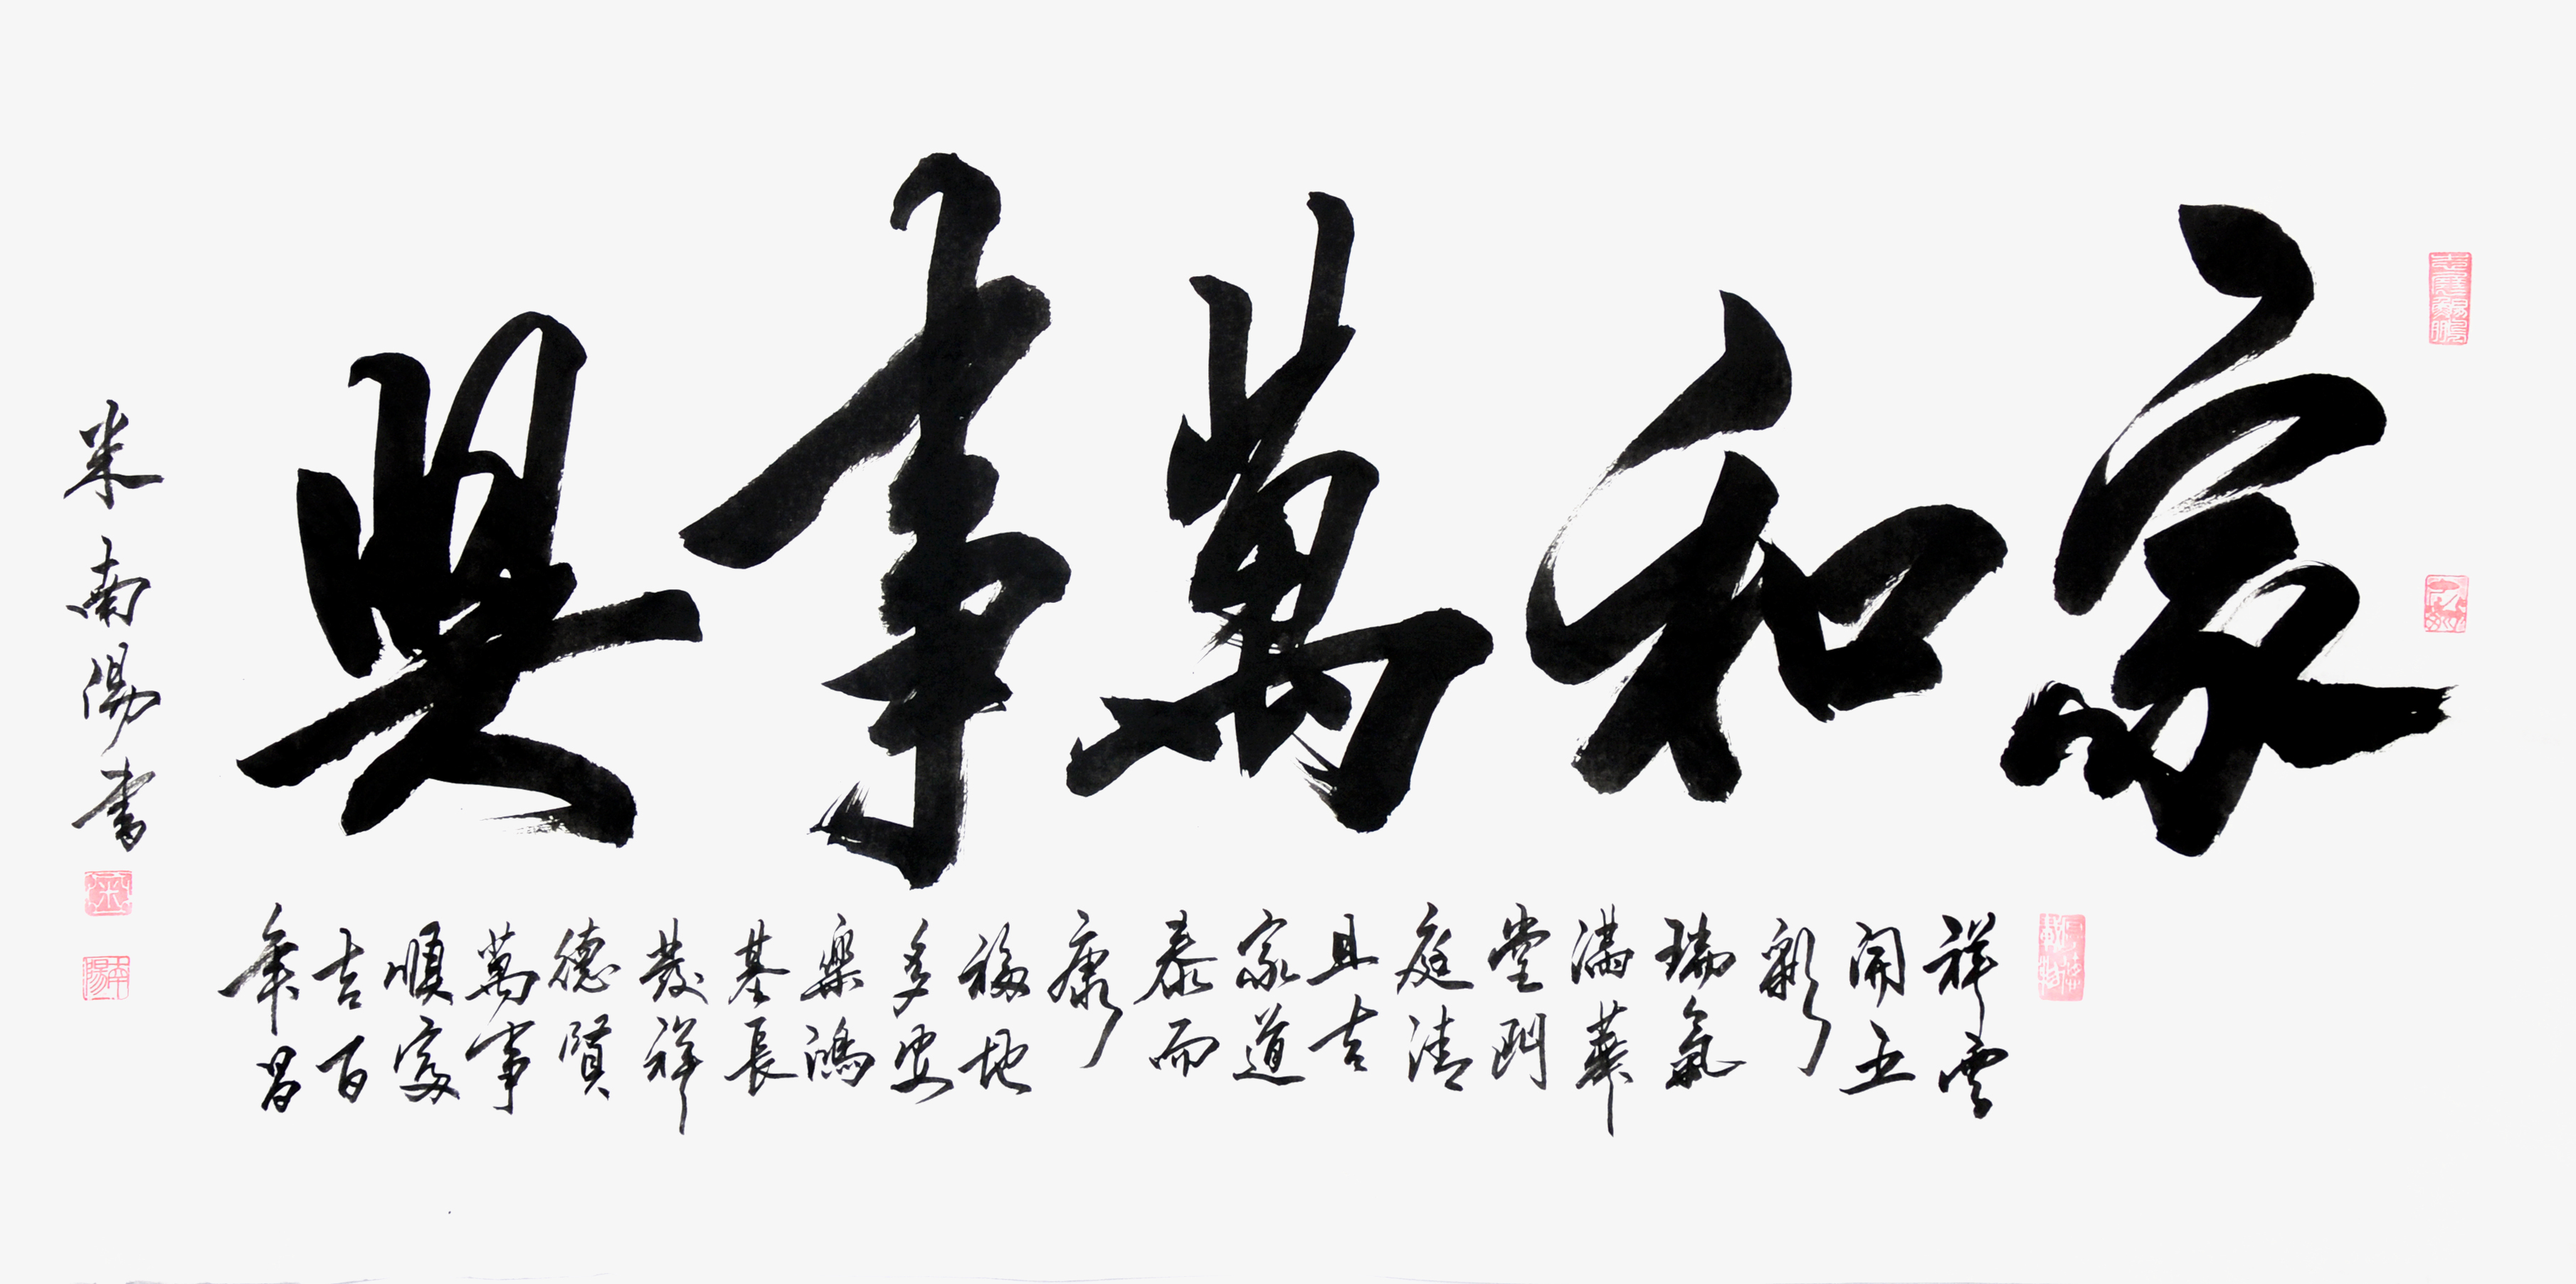 家和萬事興
祥雲
開五
彩
瑞氣
滿華
堂門
庭清
且吉
家道
泰而
康
福地
多安
樂鴻
基長
發祥
德賢
萬事
順家
吉百
年昌
米南陽書
米
南陽